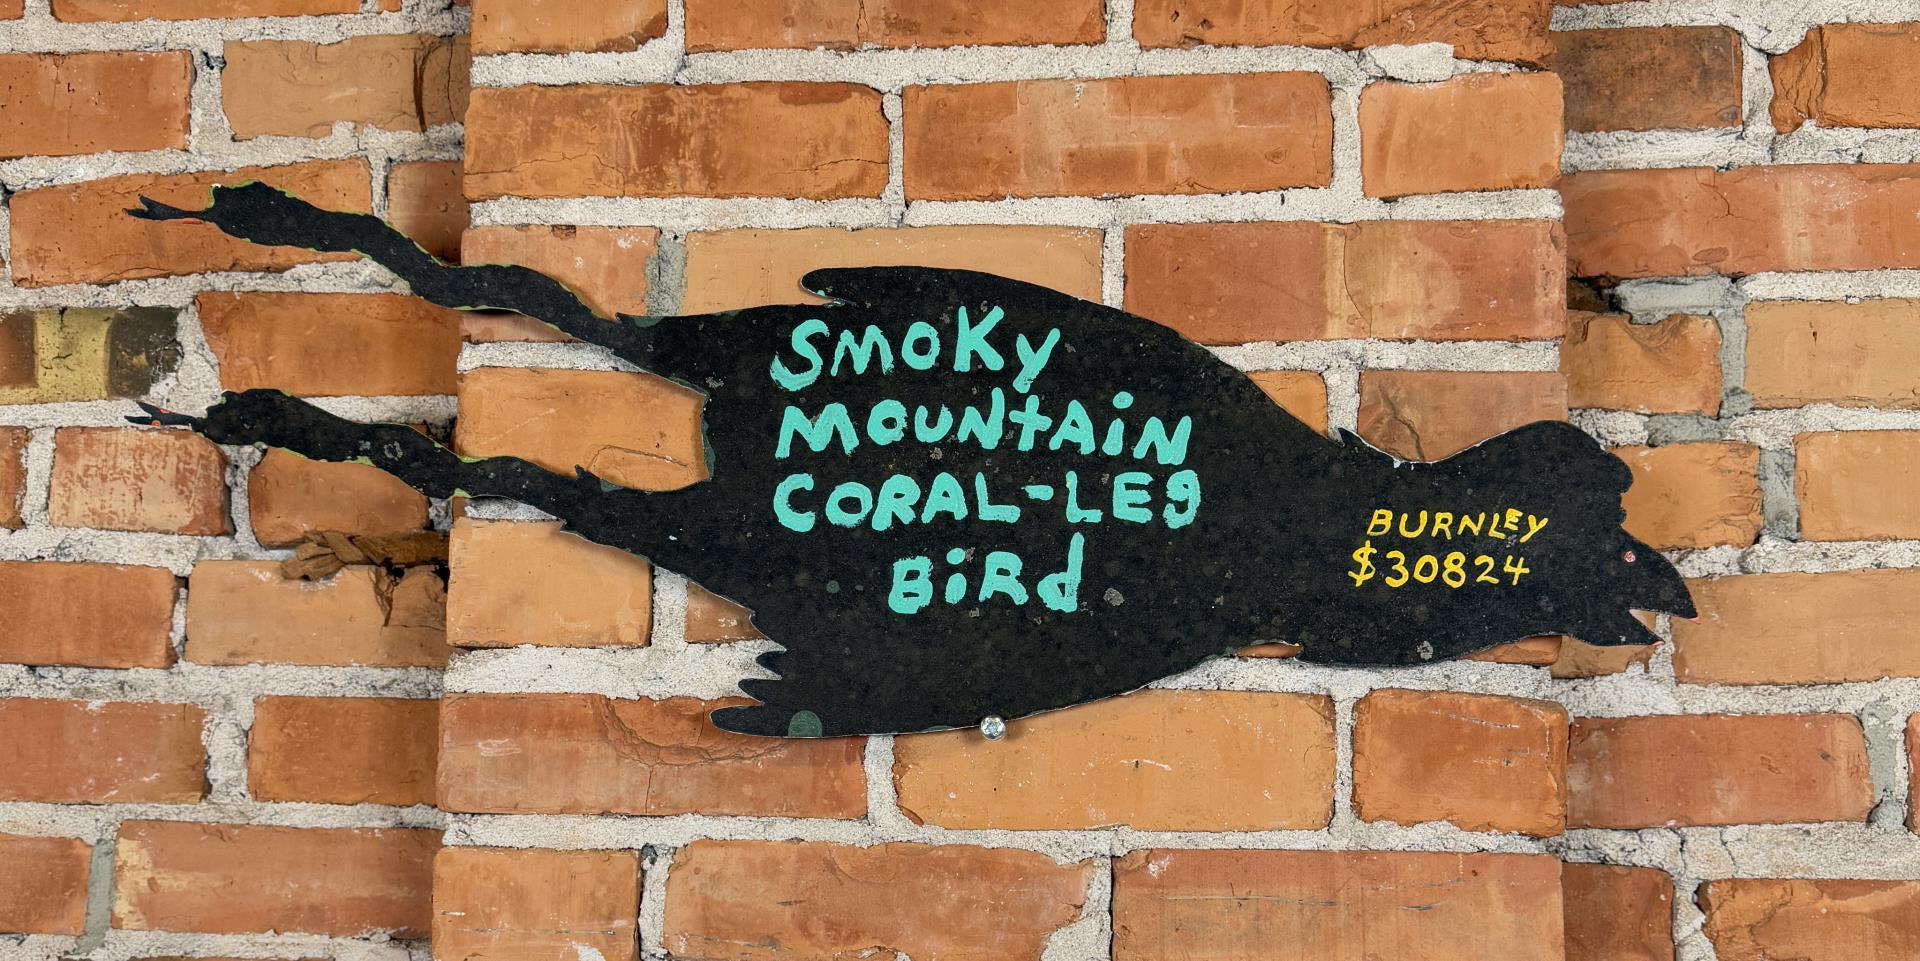 SMOKY
MOUNTAIN
CORAL-LEg
BiRd
BURNLEY
$30824